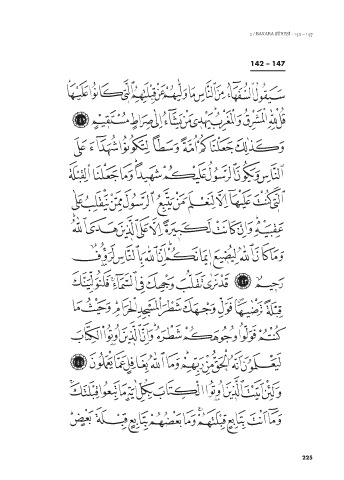 2 / BAKARA SÛRESİ · 142 – 147
142 – 147
سَيَقُولُ السُّفَهَاءُ مِنَ النَّاسِ مَا وَلّٰيهُمْ عَنْ قِبْلَتِهِمُ الَّتٖى كَانُوا عَلَيْهَا
قُلْ لِلّٰهِ الْمَشْرِقُ وَالْمَغْرِبُ يَهْدٖى مَنْ يَشَاءُ اِلٰى صِرَاطٍ مُسْتَقٖيمٍ ﴿١٤٢﴾
وَكَذٰلِكَ جَعَلْنَاكُمْ اُمَّةً وَسَطًا لِتَكُونُوا شُهَدَاءَ عَلَى
النَّاسِ وَيَكُونَ الرَّسُولُ عَلَيْكُمْ شَهٖيدًا وَمَا جَعَلْنَا الْقِبْلَةَ
الَّتٖى كُنْتَ عَلَيْهَا اِلَّا لِنَعْلَمَ مَنْ يَتَّبِعُ الرَّسُولَ مِمَّنْ يَنْقَلِبُ عَلٰى
عَقِبَيْهِ وَاِنْ كَانَتْ لَكَبٖيرَةً اِلَّا عَلَى الَّذٖينَ هَدَى اللّٰهُ
وَمَا كَانَ اللّٰهُ لِيُضٖيعَ اٖيمَانَكُمْ اِنَّ اللّٰهَ بِالنَّاسِ لَرَؤُفٌ
رَحٖيمٌ ﴿١٤٣﴾ قَدْ نَرٰى تَقَلُّبَ وَجْهِكَ فِى السَّمَاءِ فَلَنُوَلِّيَنَّكَ
قِبْلَةً تَرْضٰيهَا فَوَلِّ وَجْهَكَ شَطْرَ الْمَسْجِدِ الْحَرَامِ وَحَيْثُ مَا
كُنْتُمْ فَوَلُّوا وُجُوهَكُمْ شَطْرَهُ وَاِنَّ الَّذٖينَ اُوتُوا الْكِتَابَ
لَيَعْلَمُونَ اَنَّهُ الْحَقُّ مِنْ رَبِّهِمْ وَمَا اللّٰهُ بِغَافِلٍ عَمَّا يَعْمَلُونَ ﴿١٤٤﴾
وَلَئِنْ اَتَيْتَ الَّذٖينَ اُوتُوا الْكِتَابَ بِكُلِّ اٰيَةٍ مَا تَبِعُوا قِبْلَتَكَ
وَمَا اَنْتَ بِتَابِعٍ قِبْلَتَهُمْ وَمَا بَعْضُهُمْ بِتَابِعٍ قِبْلَةَ بَعْضٍ
225